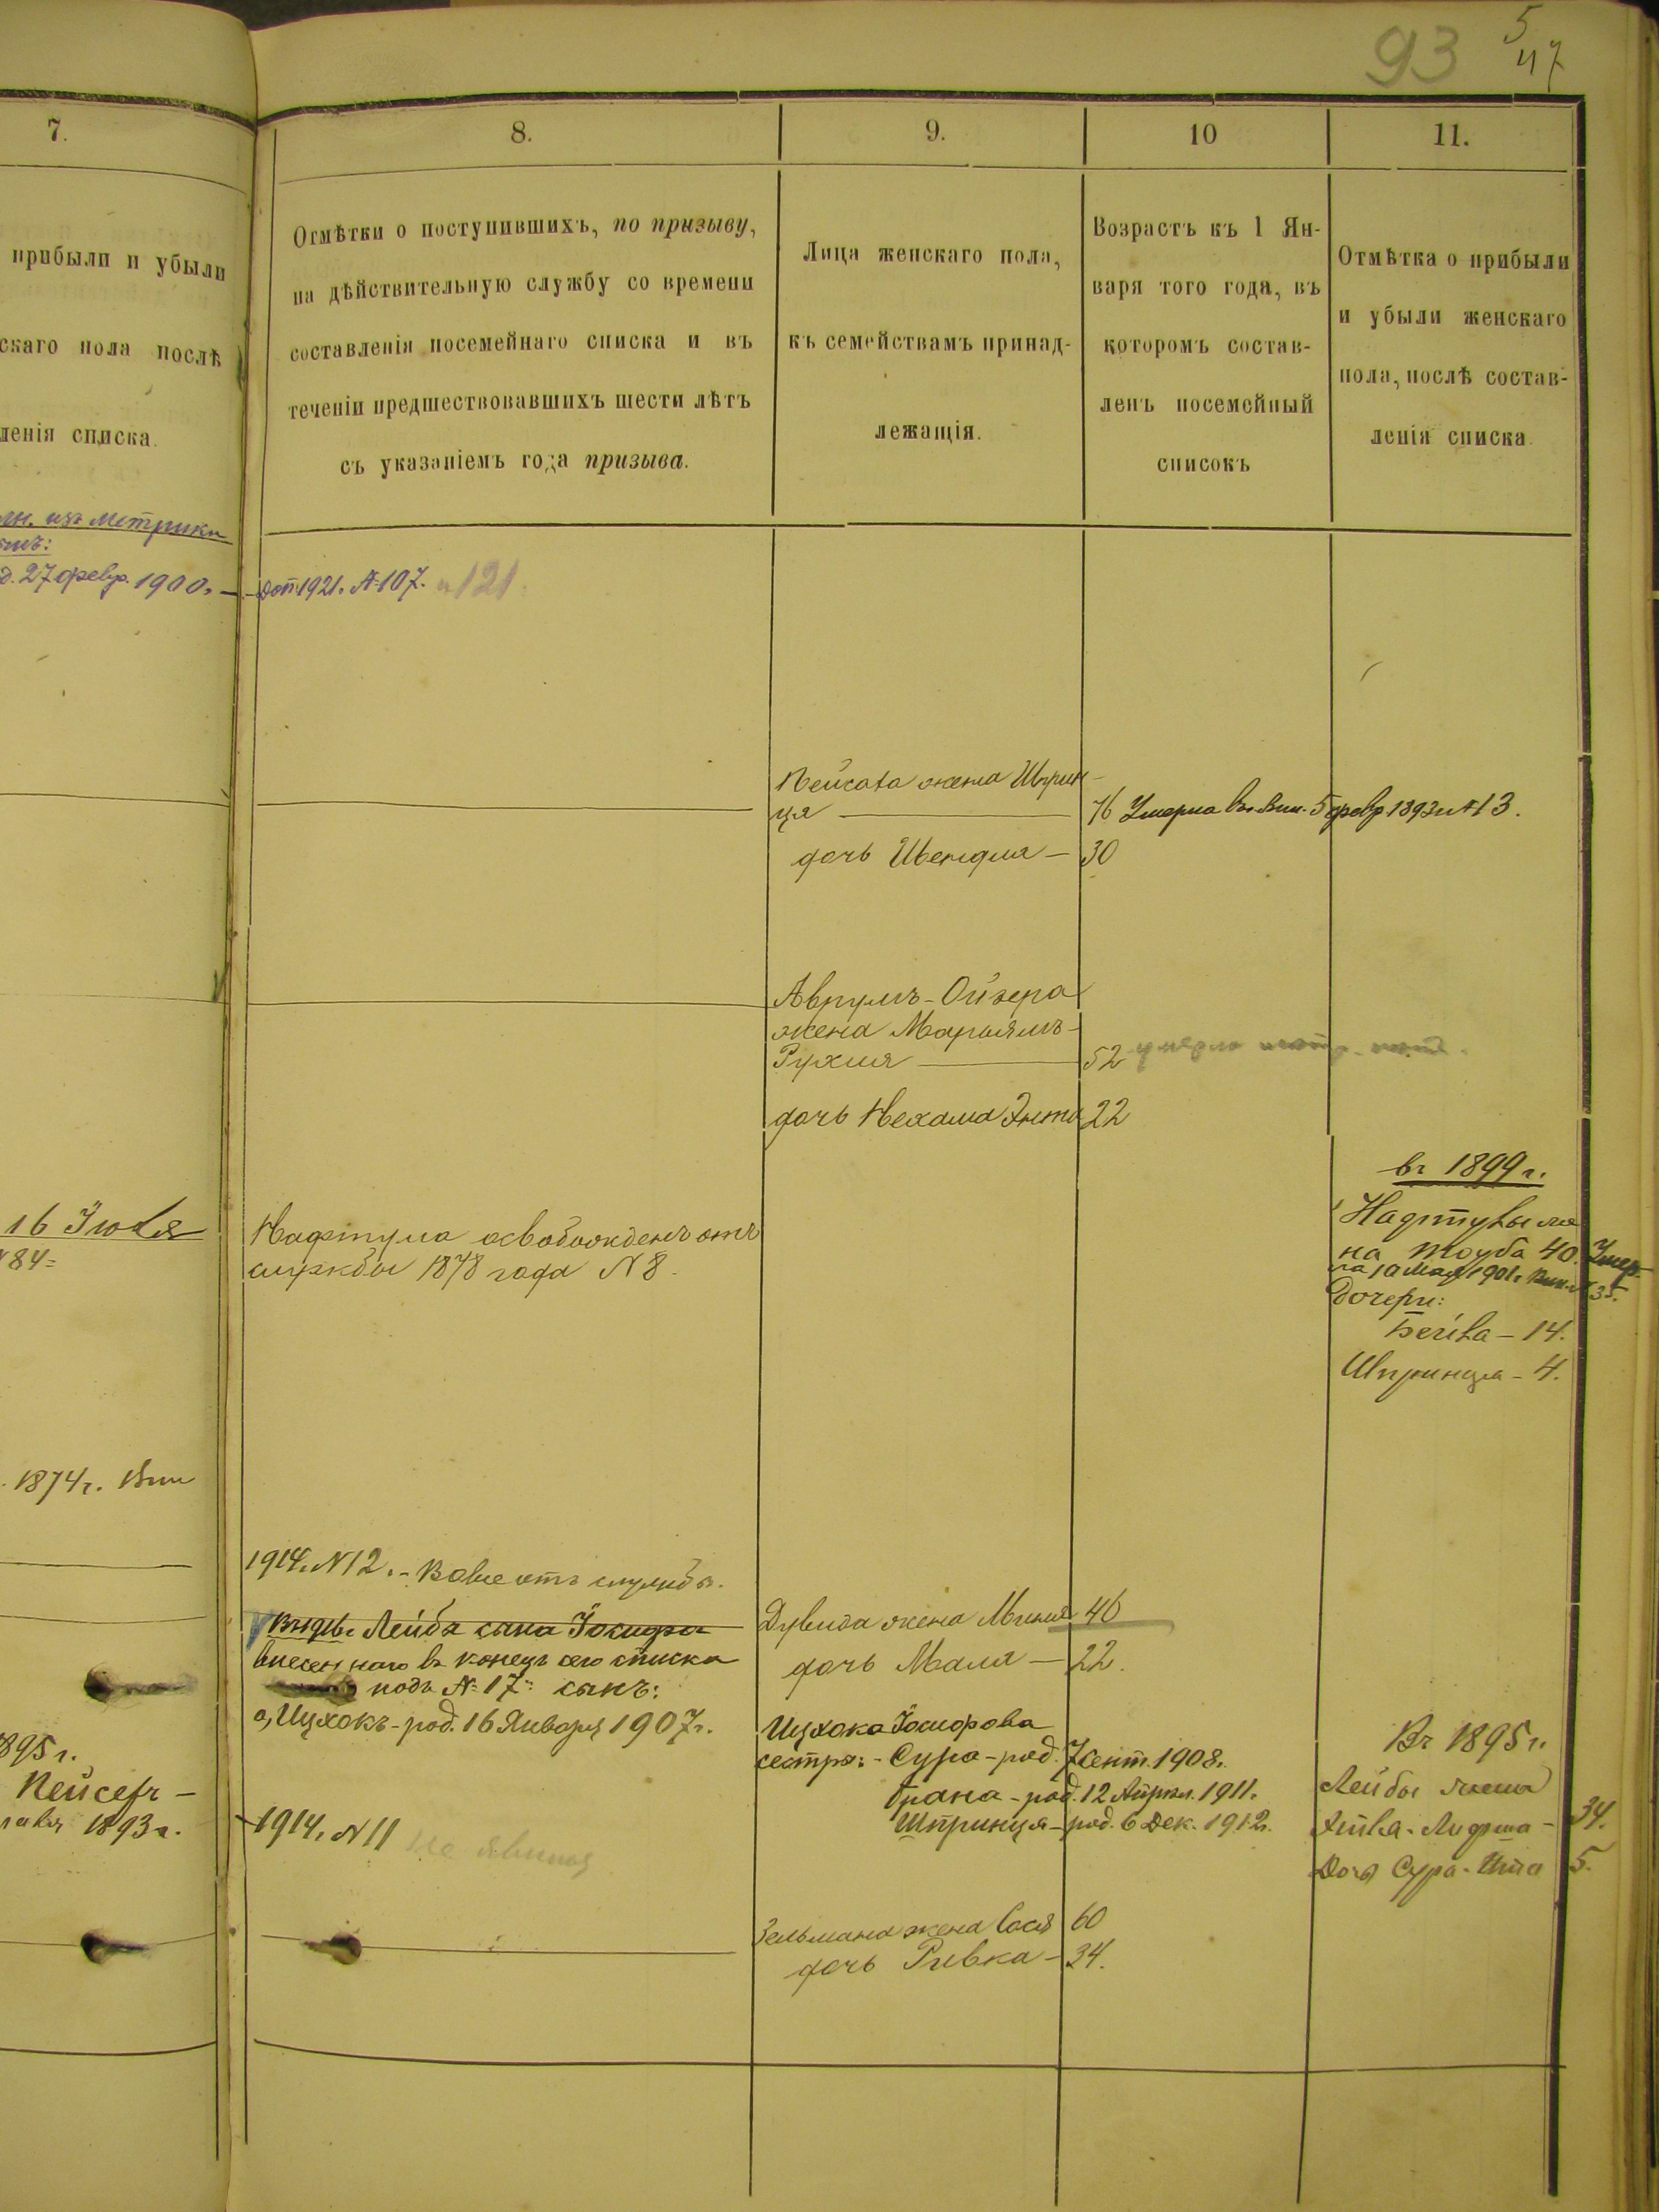 93
5
47
7.
8.
9.
10
11.
прибыли и убыли
скаго пола послѣ
ленія списка.
Отмѣтки о поступившихъ, по призыву,
на дѣйствительную службу со времени
составленія посемейнаго списка и въ
теченіи предшествовавшихъ шести лѣтъ
съ указаніемъ года призыва.
Лица женскаго пола,
къ семействамъ принад-
лежащія.
Возрастъ къ 1 Ян-
варя того года, въ
которомъ состав-
ленъ посемейный
списокъ
Отмѣтка о прибыли
и убыли женскаго
пола, послѣ состав-
ленія списка
изъ метрики
27 февр. 1900. —
Доп. 1921. № 107. 121.
Пейсаха жена Шприн-
ця — 76 Умерла въ Вил. 5 февр 1893 г № 13.
дочь Швендля — 30
Аврумъ-Ойзера
жена Марьямъ-
Рухля — 52
дочь Нехама Энта 22
16 Іюля
№ 84
Нафтула освобожденъ отъ
службы 1878 года N 8.
въ 1899 г.
Нафтулы же
на Тоуба 40. Умер-
ла 10 Мая 1901 г. Вил. № 35.
Дочери:
Бейла — 14.
Шпринца — 4.
1874 г. Вил
1914. N 12. — Вовсе отъ службы.
Вмѣсто Лейба сына Іосифа
внесеннаго въ конецъ сего списка
подъ № 17: сынъ:
а, Ицхокъ — род. 16 Января 1907 г.
Дувида жена Миня 46
дочь Маля — 22.
Ицхока Іосифова
сестры: — Сура — род. 7 Сент. 1908 г.
Брана — род. 12 Апрѣл. 1911.
Шпринця — род. 6 Дек. 1912 г.
1895 г.
Пейсехъ —
1893 г.
1914. N 11 Не явился
Въ 1895 г.
Лейбы жена
Хейла-Лифша — 34.
Дочь Сура-Ита 5.
Зельмана жена Сося 60
дочь Ривка — 34.